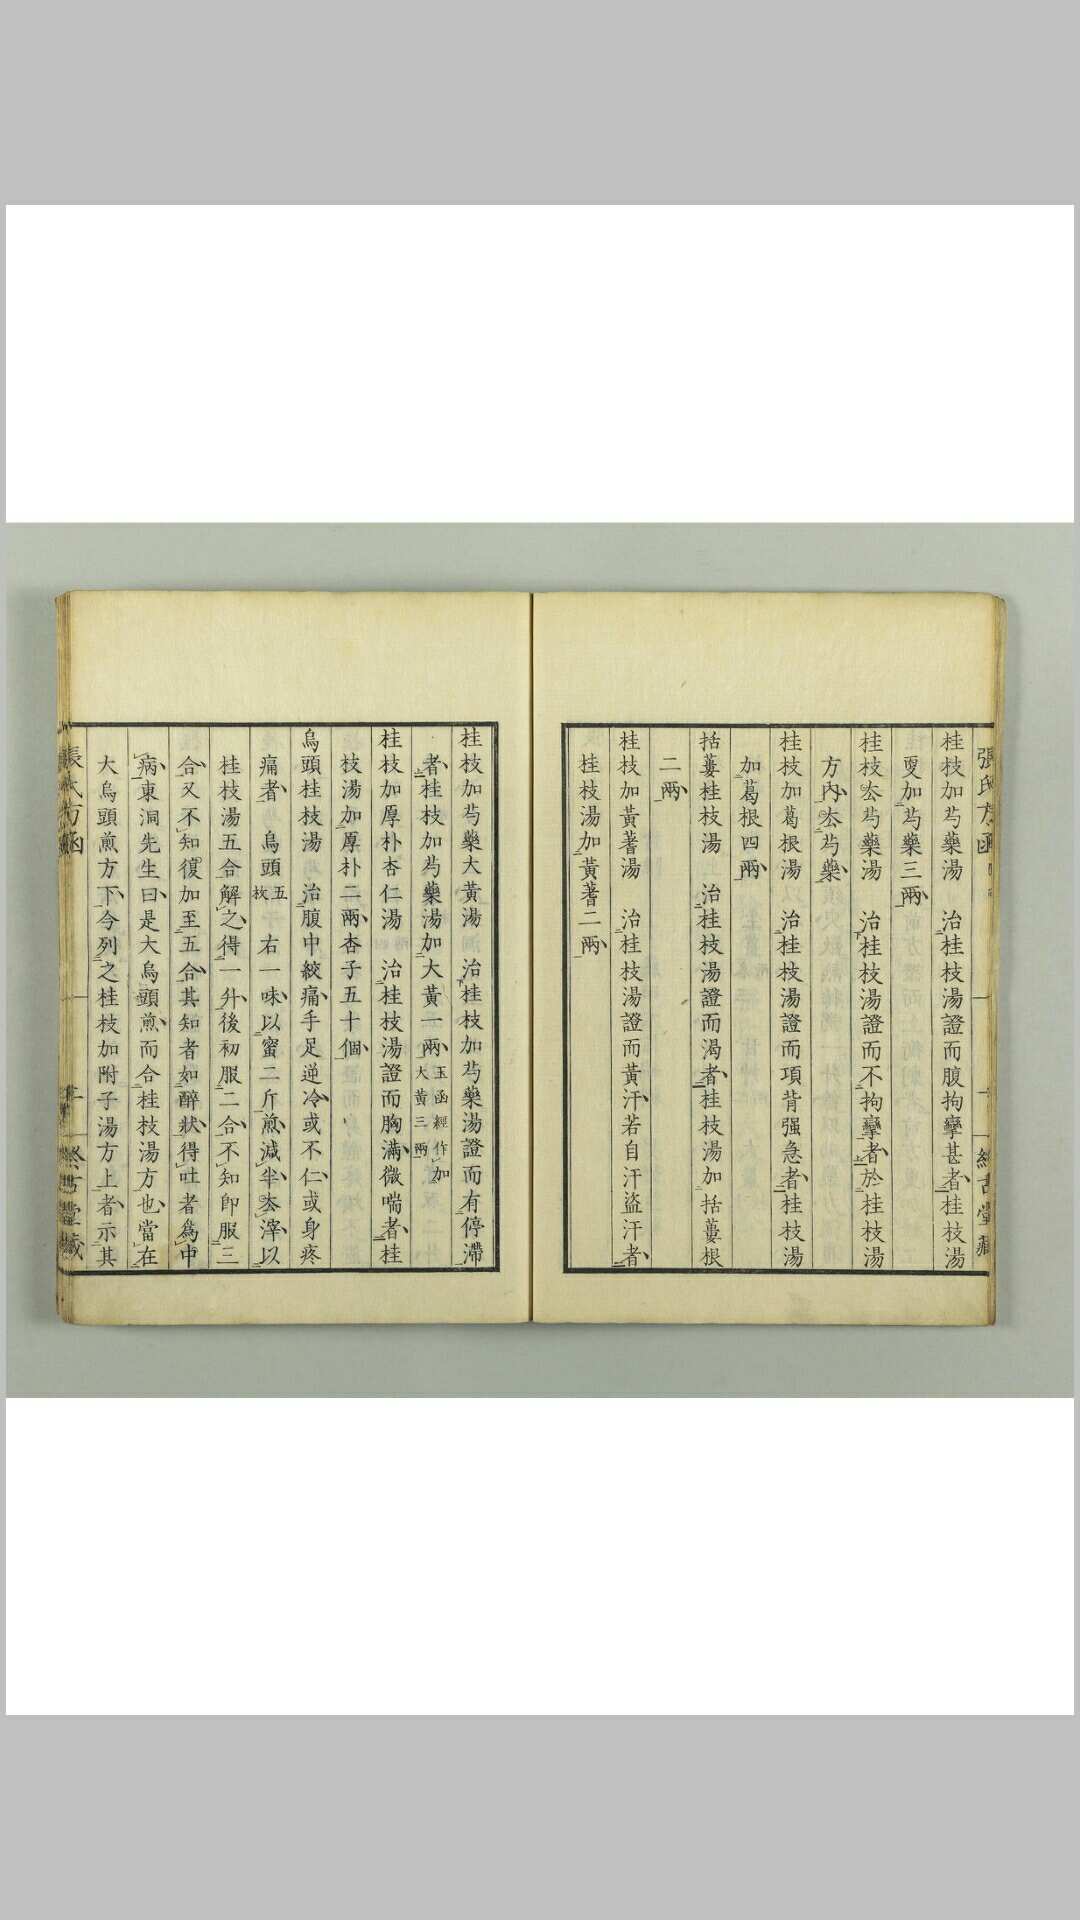 桂枝加芍藥湯　治桂枝湯證而腹拘攣甚者桂枝湯
更加芍藥三兩
桂枝去芍藥湯　治桂枝湯證而不拘攣者於桂枝湯
方內去芍藥
桂枝加葛根湯　治桂枝湯證而項背强急者桂枝湯
加葛根四兩
括蔞桂枝湯　治桂枝湯證而渴者桂枝湯加括蔞根
二兩
桂枝加黃蓍湯　治桂枝湯證而黃汗若自汗盜汗者
桂枝湯加黃蓍二兩
桂枝加芍藥大黃湯　治桂枝加芍藥湯證而有停滯
者桂枝加芍藥湯加大黃一兩玉函經作加大黃三兩
桂枝加厚朴杏仁湯　治桂枝湯證而胸滿微喘者桂
枝湯加厚朴二兩杏子五十個
烏頭桂枝湯　治腹中絞痛手足逆冷或不仁或身疼
痛者　烏頭五枚　右一味以蜜二斤煎減半去滓以
桂枝湯五合解之得一升後初服二合不知卽服三
合又不知復加至五合其知者如醉狀得吐者爲中
病東洞先生曰是大烏頭煎而合桂枝湯方也當在
大烏頭煎方下今列之桂枝加附子湯方上者示其
張氏方函